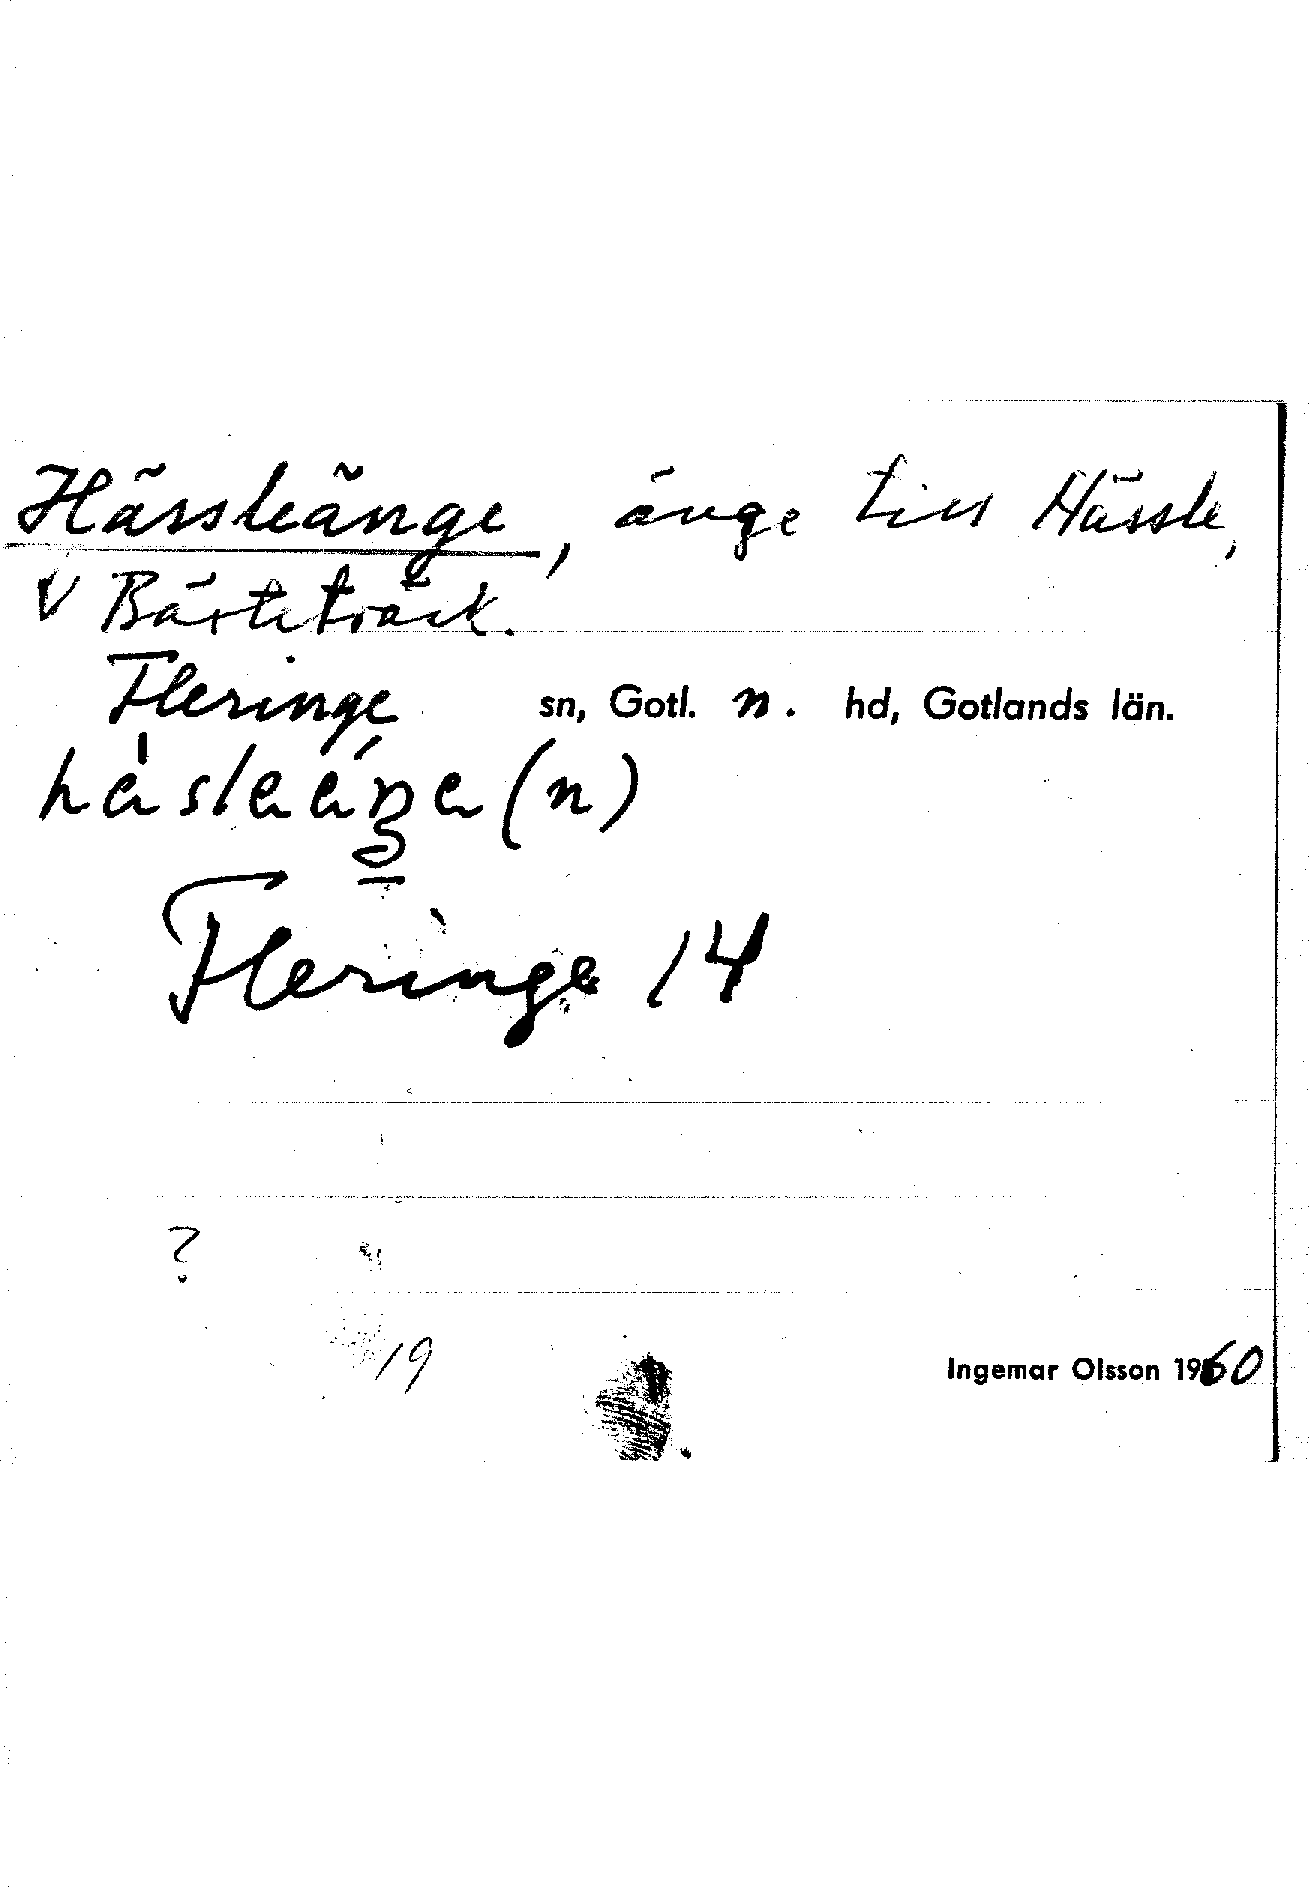 Hässleänge, änge till Hässle,
V Bästeträsk.
Fleringe sn, Gotl. n. hd, Gotlands län.
(n)
Fleringe 14
?
19
Ingemar Olsson 1960